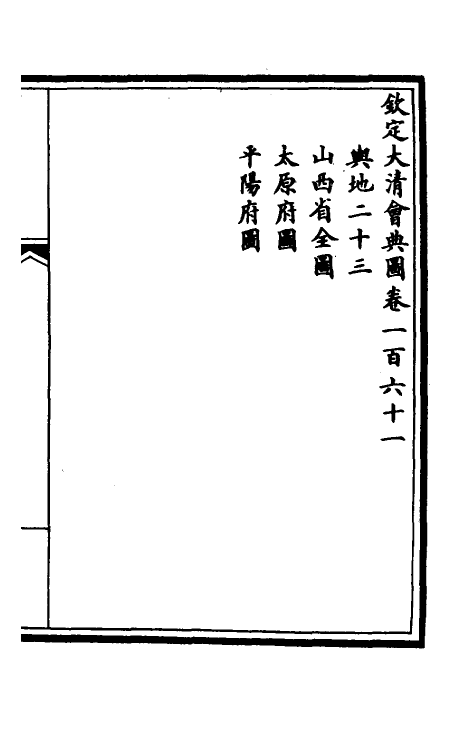 欽定大清會典圖卷一百六十一
輿地二十三
山西省全圖
太原府圖
平陽府圖